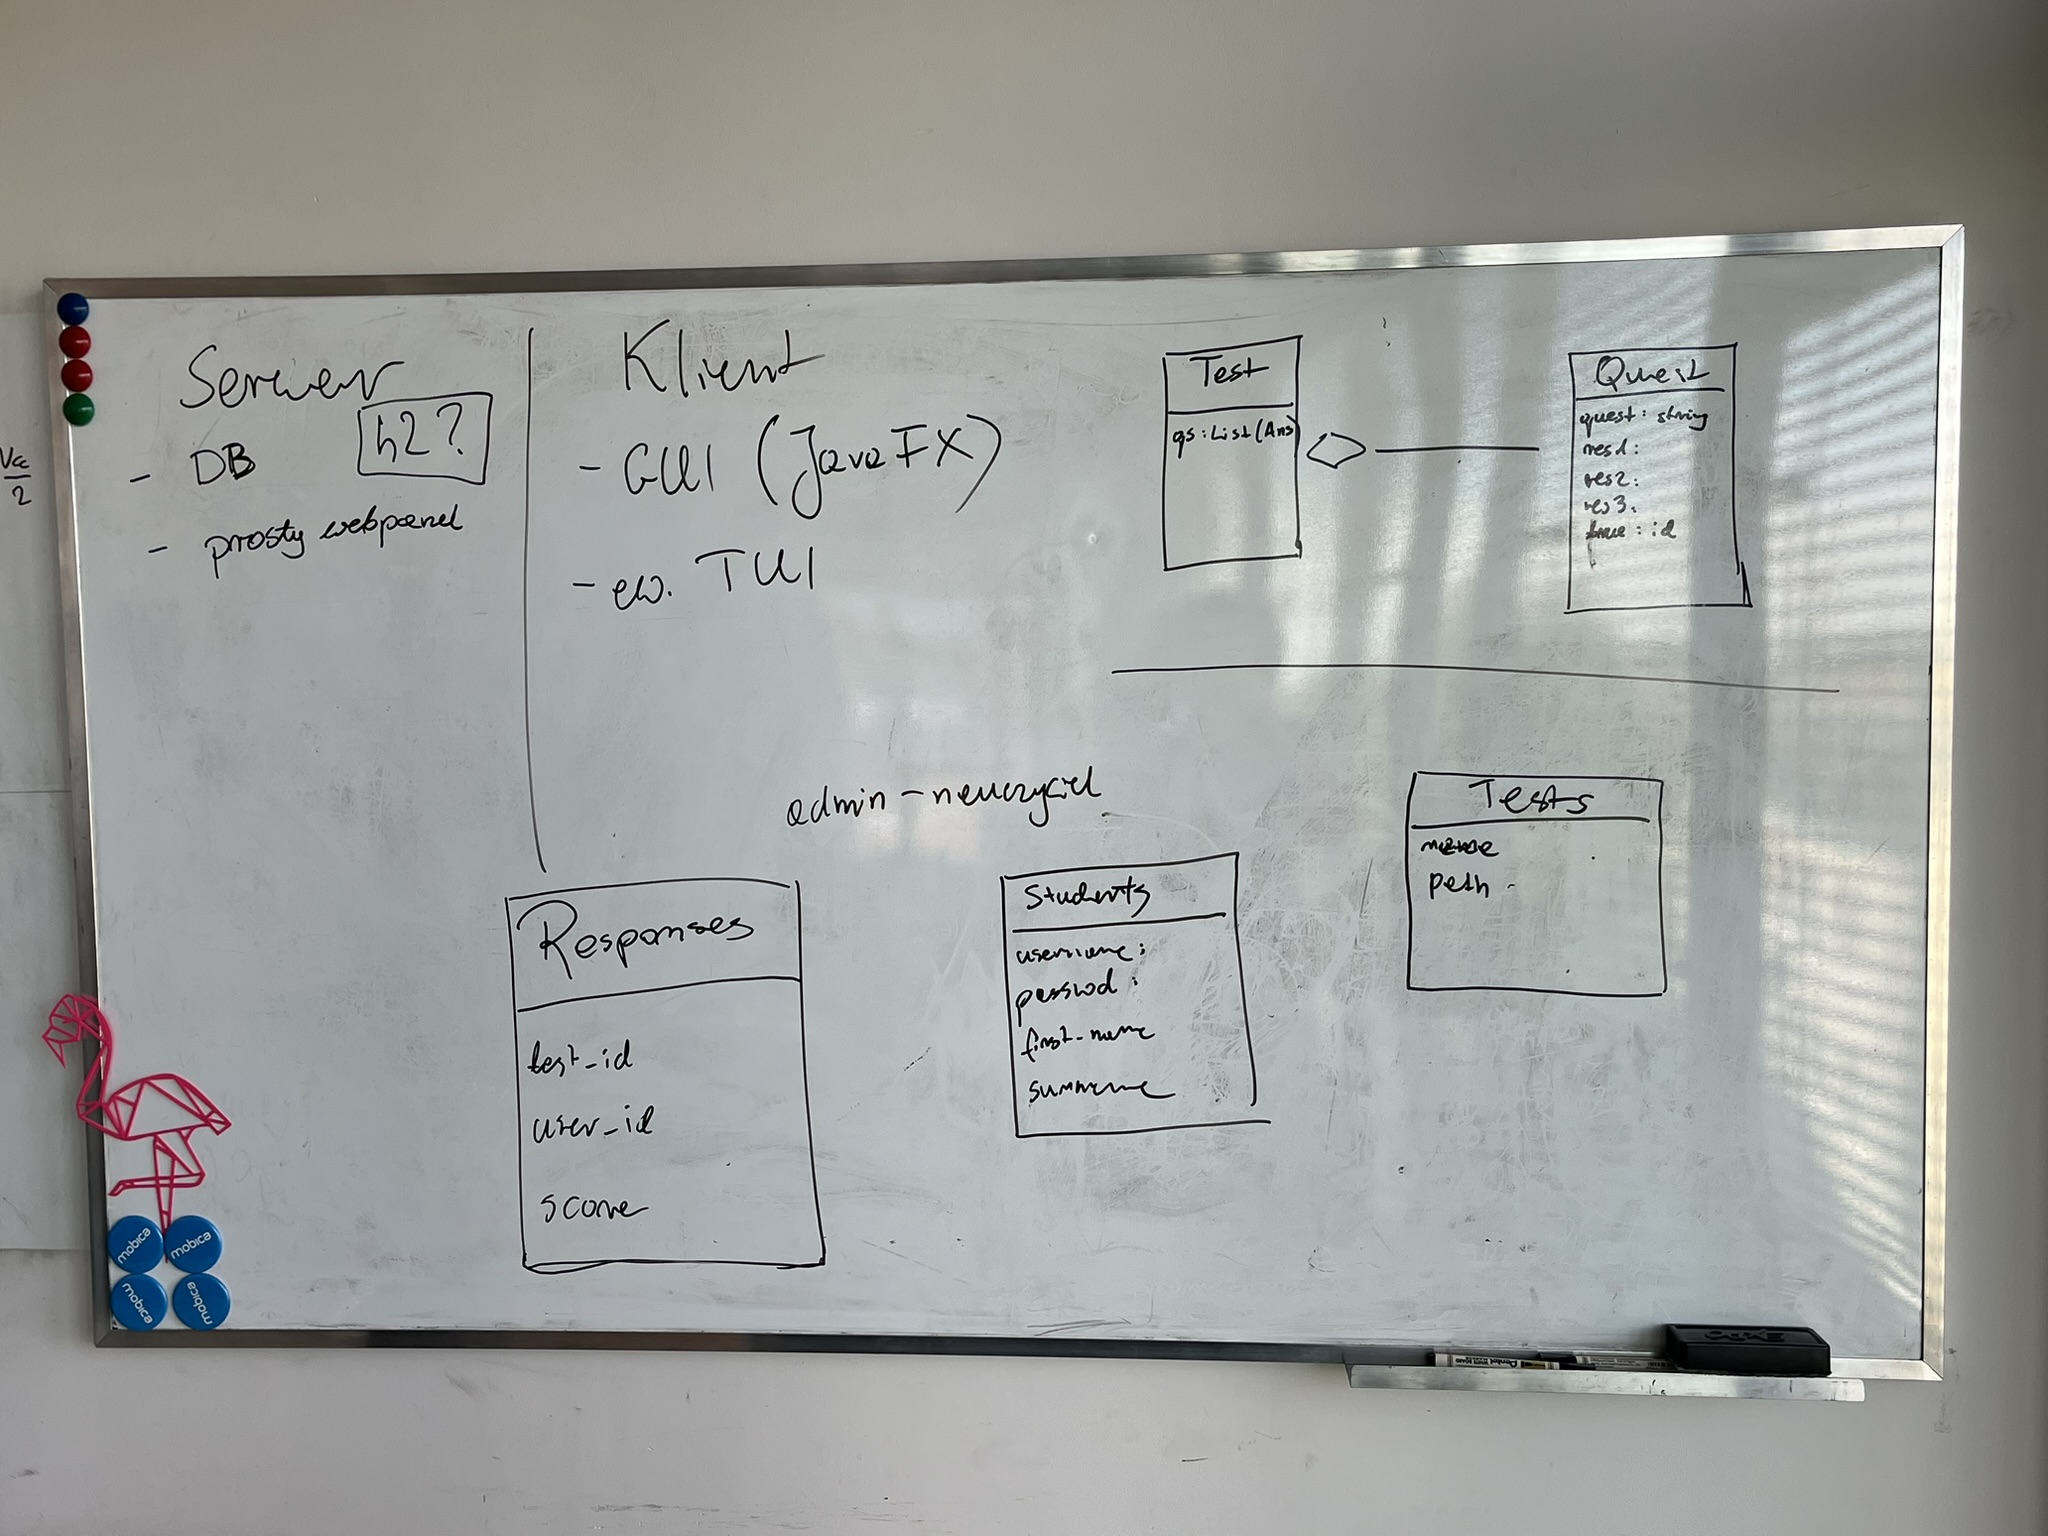 Serwer
h2?
- DB
- prosty webpanel
Klient
- GUI (JavaFX)
- ew. TUI
Test
qs: List(Ans)
Quest
quest: string
res1:
res2:
res3:
true: id
admin - nauczyciel
Responses
test_id
user_id
score
Students
username:
passwod:
first_name
surname
Tests
name
path
mobica
mobica
mobica
mobica
EXPO
2